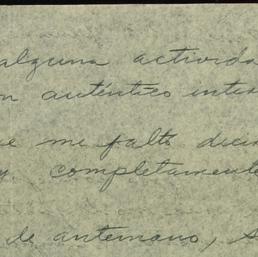 alguna activida
n auténtico inte
e me faltó deci
y. completamente
de antemano, s